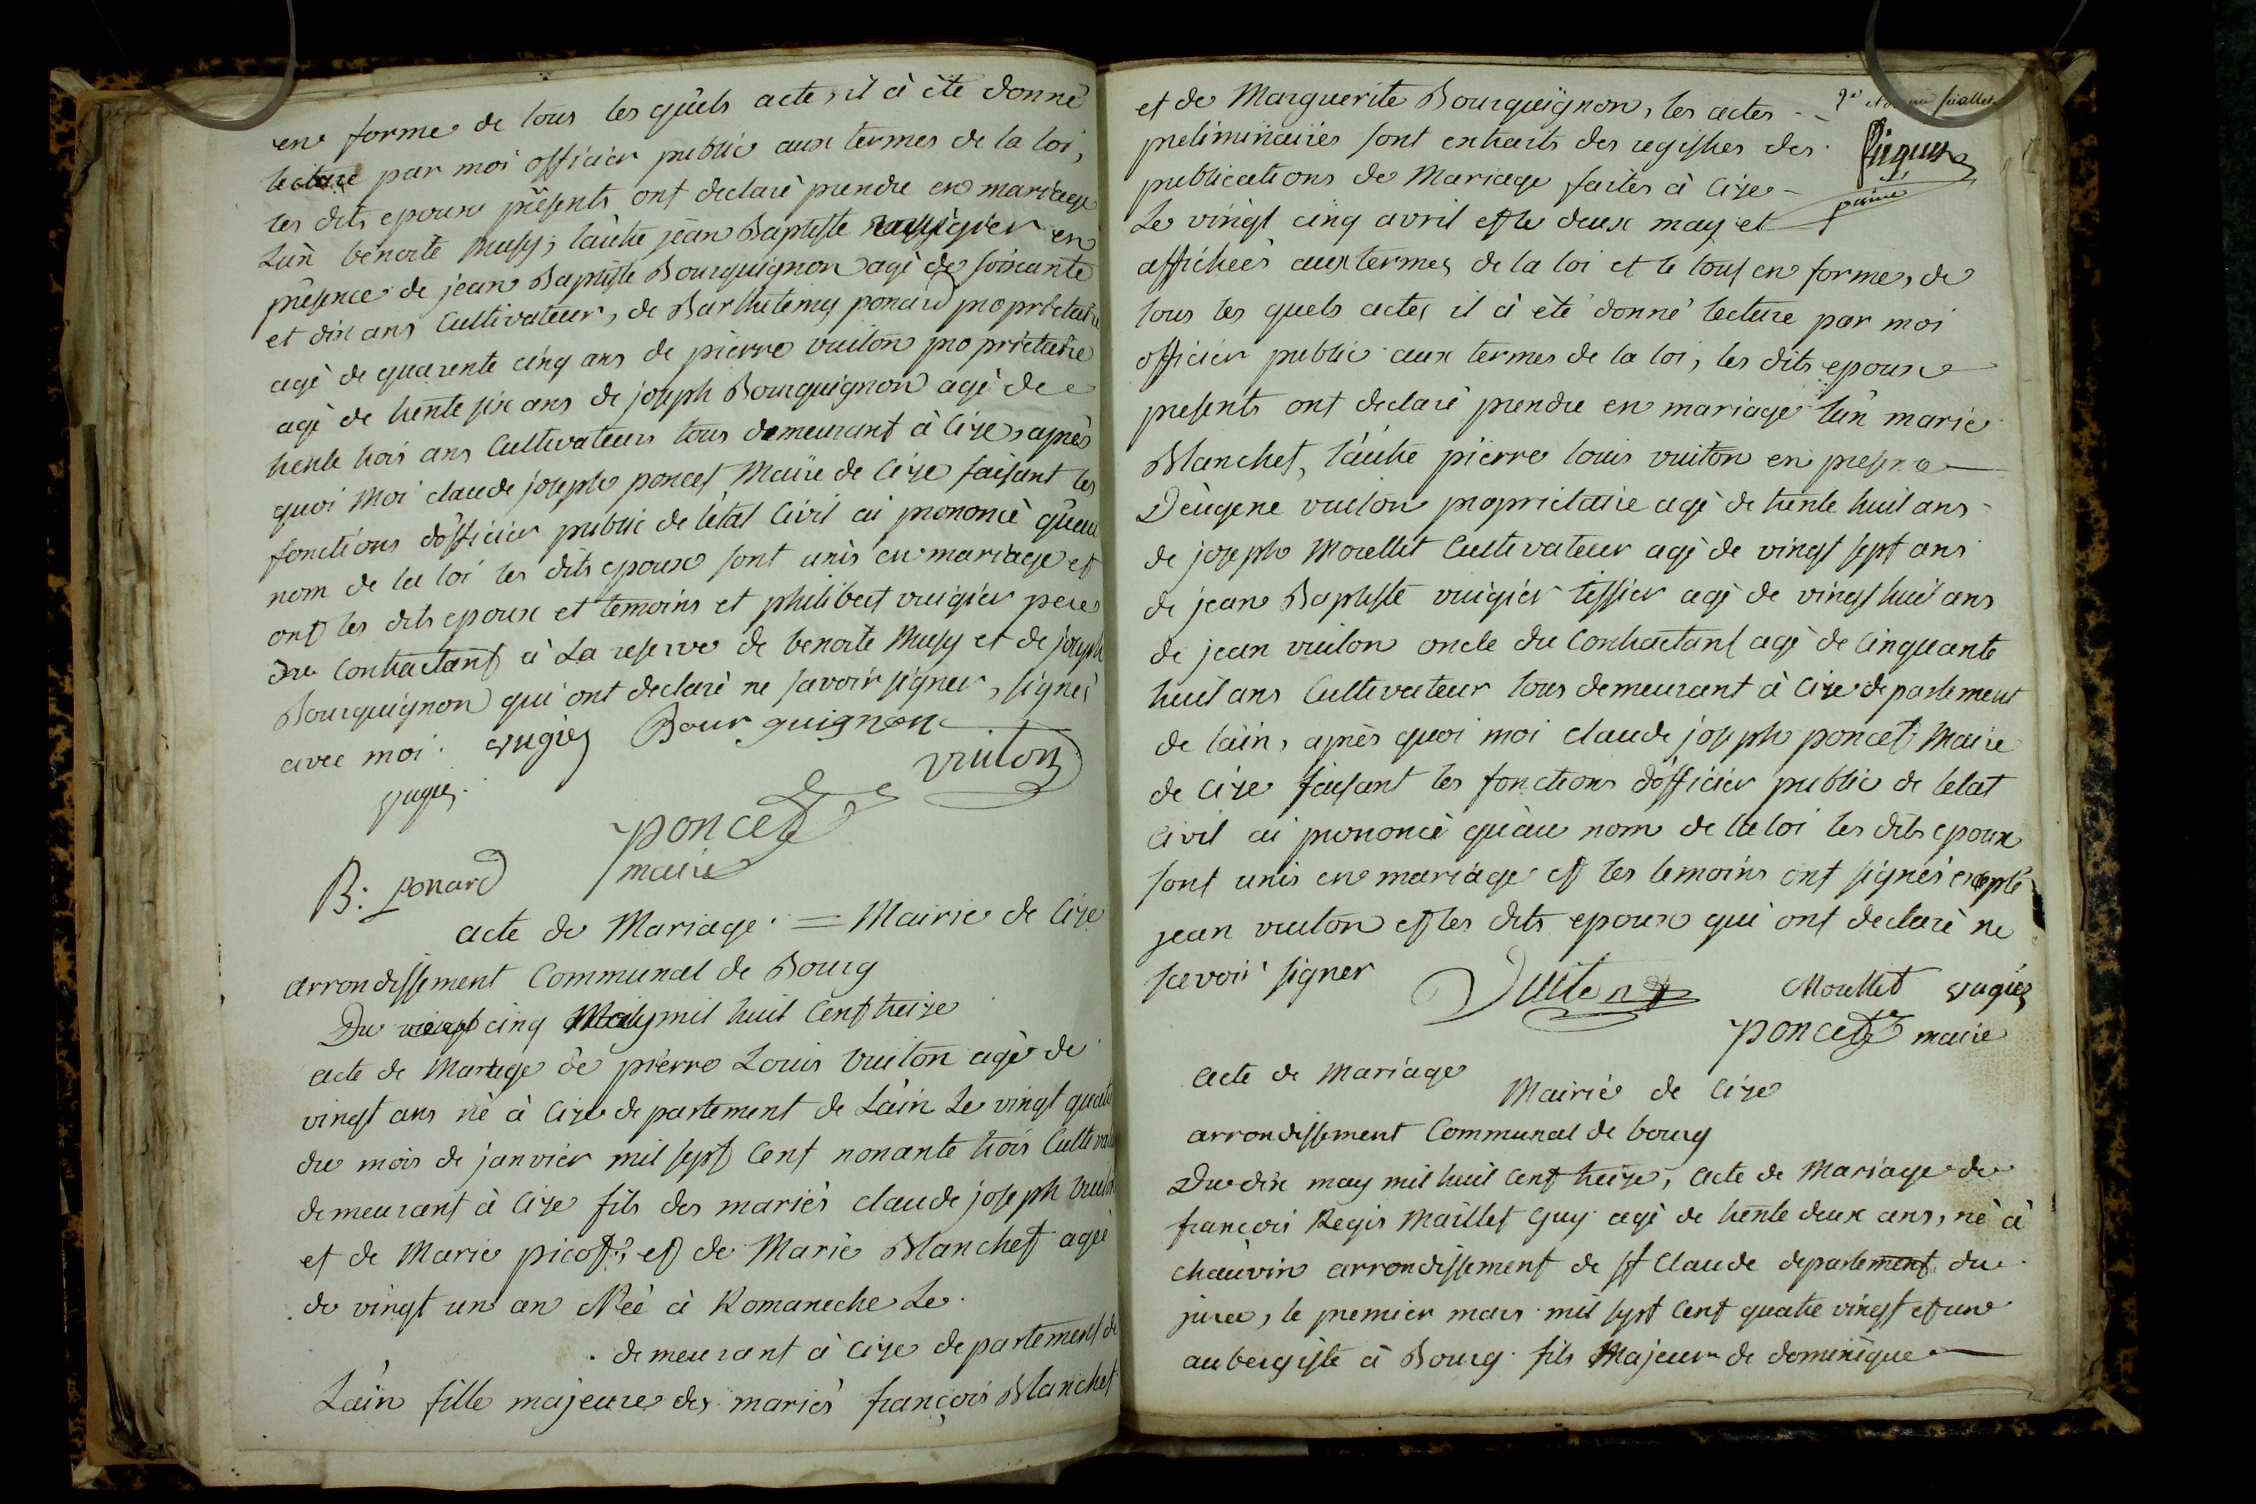 en forme de tous les quels acte, il à èté donné
lecture par moi officier public aux termes de la loi,
les dits epoux présents ont declaré prendre en mariage
Lun benoite Musy, laûtre jean Baptiste vugier en
présence de jean Baptiste Bourguignon agé de soixante
et dix ans Cultivateur, de Barthelemy ponard propriétaire
agé de quarente cinq ans de pierre vuiton propriétaire
agé de trente six ans de joseph Bourguignon agé de
trente trois ans Cultivateurs tous demeurant à Cize, après
quoi Moi claude joseph poncet Maire de Cize faisant les
fonctions dofficier public de létat Civil ai prononcé quau
nom de la loi les dits epoux sont unis en mariage et
ont les dits epoux et temoins et philibert vuigier pere
du Contractant à La reserve de benoite Musy et de joseph
Bourguignon qui ont declaré ne savoir signer, signés
avec moi. vugier Bourguignon
vuiton
vugier.
poncet
maire
B: ponard
acte de Mariage. = Mairie de Cize
arrondissement Communal de Bourg
Du cinq May mil huit Cent treize
acte de Mariage de pierre Louis Vuiton agé de
vingt ans né à Cize departement de Làin Le vingt quatre
du mois de janvier mil sept Cent nonante trois Cultivateur
demeurant à Cize fils des mariés claude joseph Vuiton
et de Marie picot, et de Marie Blanchet agée
de vingt un an Née à Romaneche Le
demeurant à Cize departement de
Làin fille majeure des mariés françois Blanchet
et de Marguerite Bourguignon, les actes
preliminaires sont extraits des registres des
publications de Mariage faites à Cize
Le vingt cinq avril et le deux may et
affichées aux termes de la loi et le tout en forme, de
tous les quels actes il à été donné lecture par moi
officier public aux termes de la loi, les dits epoux
presents ont declaré prendre en mariage lun marie
Blanchet, làutre pierre louis vuiton en presence
Deùgene vuiton propriétaire agé de trente huit ans
de joseph Morellet Cultivateur agé de vingt sept ans
de jean Baptiste vuigier tissier agé de vingt huit ans
de jean vuiton oncle du Contractant agé de Cinquante
huit ans Cultivateur tous demeurant à Cize departement
de làin, après quoi moi claude joseph poncet Maire
de Cize faisant les fonctions dòfficier public de letat
Civil ai prononcé quàu nom de la loi les dits epoux
sont unis en mariage et les temoins ont signés excepté
jean vuiton et les dits epoux qui ont declaré ne
scavoir signer
Vuiton Morellet vugier
poncet maire
acte de Mariage
Mairie de Cize
arrondissement Communal de bourg
Du dix may mil huit Cent treize, acte de Mariage de
francois Regis Maillet Guy agé de trente deux ans, né à
chàuvin arrondissement de st Claude departement du
jura, le premier mars mil sept Cent quatre vingt et un
aubergiste à Bourg fils Majeur de dominique